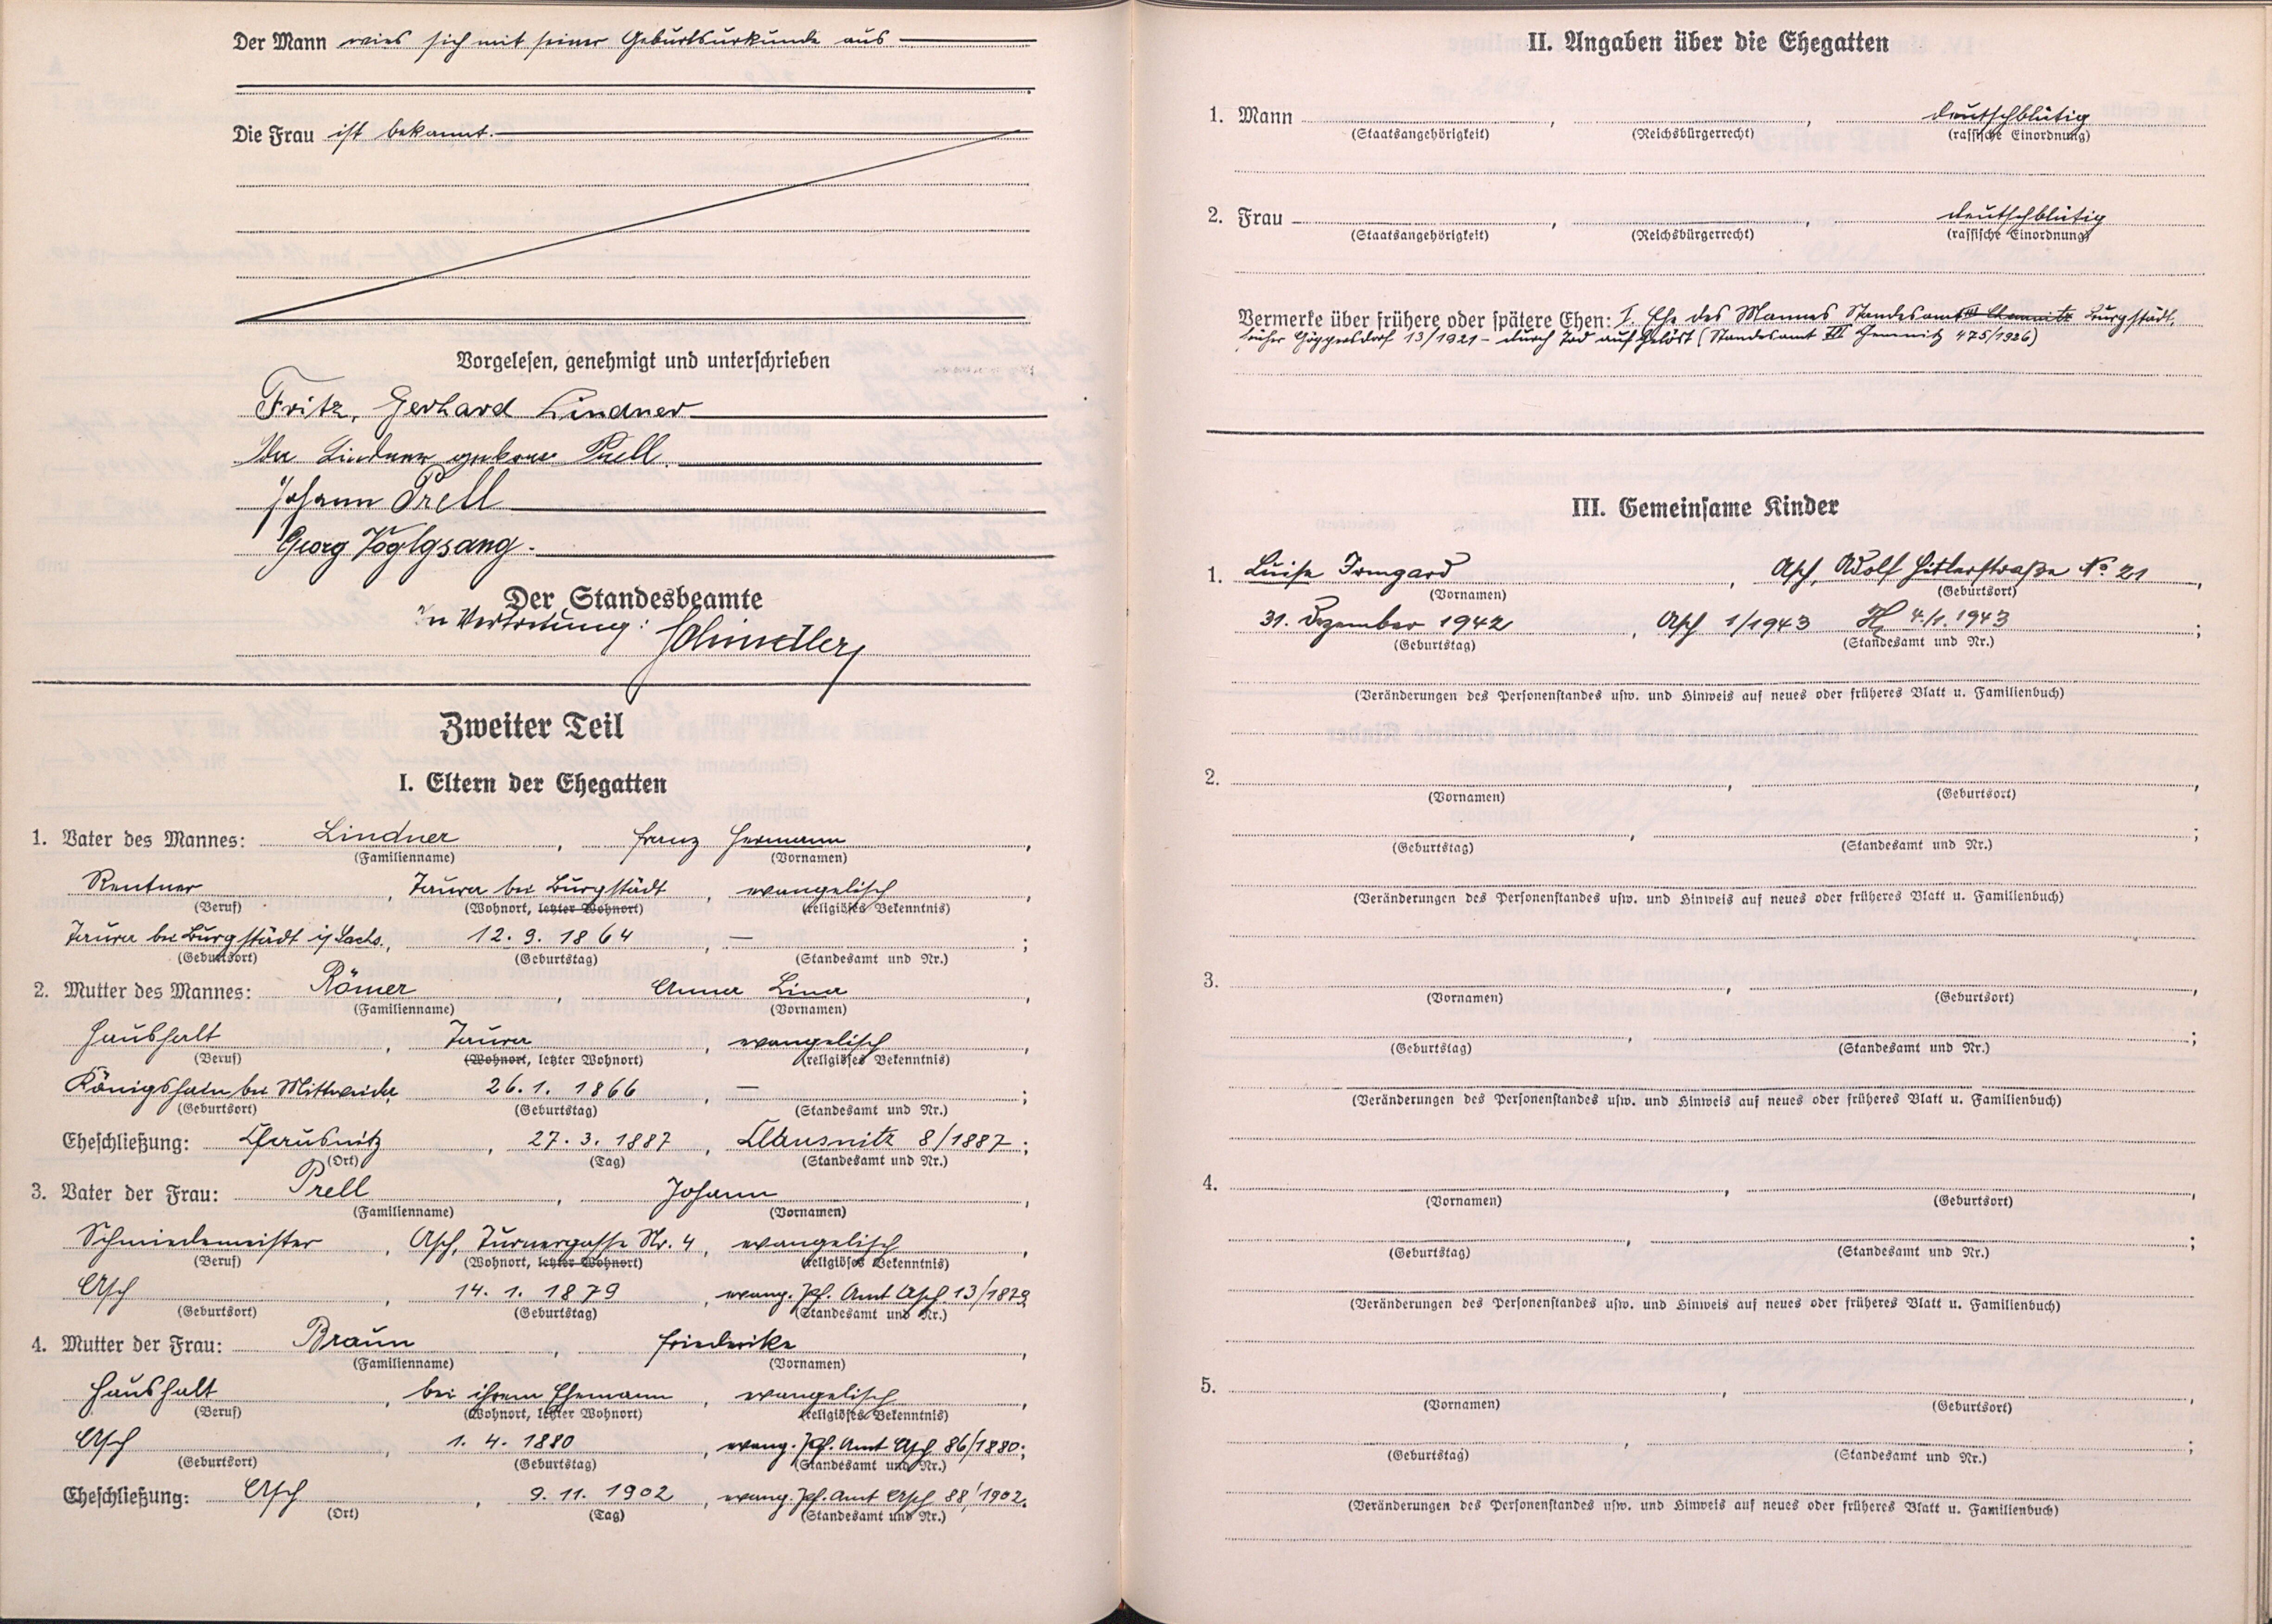 Der Mann wies sich mit seiner Geburtsurkunde aus
Die Frau ist bekannt.
Vorgelesen, genehmigt und unterschrieben
Fritz, Gerhard Lindner
Ida Lindner geborene Prell.
Johann Prell
Georg Voglgsang.
Der Standesbeamte
In Vertretung: Schindler
Zweiter Teil
I. Eltern der Ehegatten
1. Vater des Mannes: Lindner, Franz Hermann,
(Familienname) (Vornamen)
Rentner, Taura bei Burgstädt, evangelisch,
(Beruf) (Wohnort, letzter Wohnort) (religiöses Bekenntnis)
Taura bei Burgstädt i/ Sachs., 12. 9. 1864, —;
(Geburtsort) (Geburtstag) (Standesamt und Nr.)
2. Mutter des Mannes: Römer, Anna Lina,
(Familienname) (Vornamen)
Haushalt, Taura, evangelisch,
(Beruf) (Wohnort, letzter Wohnort) (religiöses Bekenntnis)
Königshain bei Mittweida, 26. 1. 1866, —;
(Geburtsort) (Geburtstag) (Standesamt und Nr.)
Eheschließung: Claußnitz, 27. 3. 1887, Clausnitz 8/1887;
(Ort) (Tag) (Standesamt und Nr.)
3. Vater der Frau: Prell, Johann,
(Familienname) (Vornamen)
Schmiedemeister, Asch, Turnergasse Nr. 4, evangelisch,
(Beruf) (Wohnort, letzter Wohnort) (religiöses Bekenntnis)
Asch, 14. 1. 1879, evang. Pf. Amt Asch 13/1879
(Geburtsort) (Geburtstag) (Standesamt und Nr.)
4. Mutter der Frau: Braun, Friederike,
(Familienname) (Vornamen)
Haushalt, bei ihrem Ehemann, evangelisch,
(Beruf) (Wohnort, letzter Wohnort) (religiöses Bekenntnis)
Asch, 1. 4. 1880, evang. Pf. Amt Asch 86/1880;
(Geburtsort) (Geburtstag) (Standesamt und Nr.)
Eheschließung: Asch, 9. 11. 1902, evang. Pf. Amt Asch 88/1902.
(Ort) (Tag) (Standesamt und Nr.)
II. Angaben über die Ehegatten
1. Mann , , deutschblütig
(Staatsangehörigkeit) (Reichsbürgerrecht) (rassische Einordnung)
2. Frau , , deutschblütig
(Staatsangehörigkeit) (Reichsbürgerrecht) (rassische Einordnung)
Vermerke über frühere oder spätere Ehen: I. Ehe des Mannes Standesamt III Chemnitz Burgstädt,
früher Göppersdorf 13/1921 – durch Tod aufgelöst (Standesamt III Chemnitz 475/1926)
III. Gemeinsame Kinder
1. Luise Irmgard, Asch, Adolf Hitlerstraße No 21,
(Vornamen) (Geburtsort)
31. Dezember 1942, Asch 1/1943 4./1. 1943;
(Geburtstag) (Standesamt und Nr.)
(Veränderungen des Personenstandes usw. und Hinweis auf neues oder früheres Blatt u. Familienbuch)
2. , ,
(Vornamen) (Geburtsort)
, ;
(Geburtstag) (Standesamt und Nr.)
(Veränderungen des Personenstandes usw. und Hinweis auf neues oder früheres Blatt u. Familienbuch)
3. , ,
(Vornamen) (Geburtsort)
, ;
(Geburtstag) (Standesamt und Nr.)
(Veränderungen des Personenstandes usw. und Hinweis auf neues oder früheres Blatt u. Familienbuch)
4. , ,
(Vornamen) (Geburtsort)
, ;
(Geburtstag) (Standesamt und Nr.)
(Veränderungen des Personenstandes usw. und Hinweis auf neues oder früheres Blatt u. Familienbuch)
5. , ,
(Vornamen) (Geburtsort)
, ;
(Geburtstag) (Standesamt und Nr.)
(Veränderungen des Personenstandes usw. und Hinweis auf neues oder früheres Blatt u. Familienbuch)